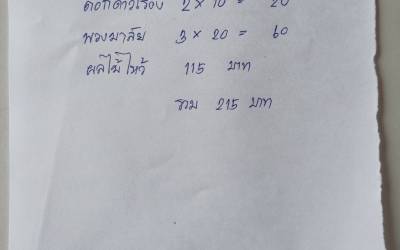 ดอกดาวเรือง 2 × 10 = 20
พวงมาลัย 3 × 20 = 60
ผลไม้ไหว้ 115 บาท
รวม 215 บาท